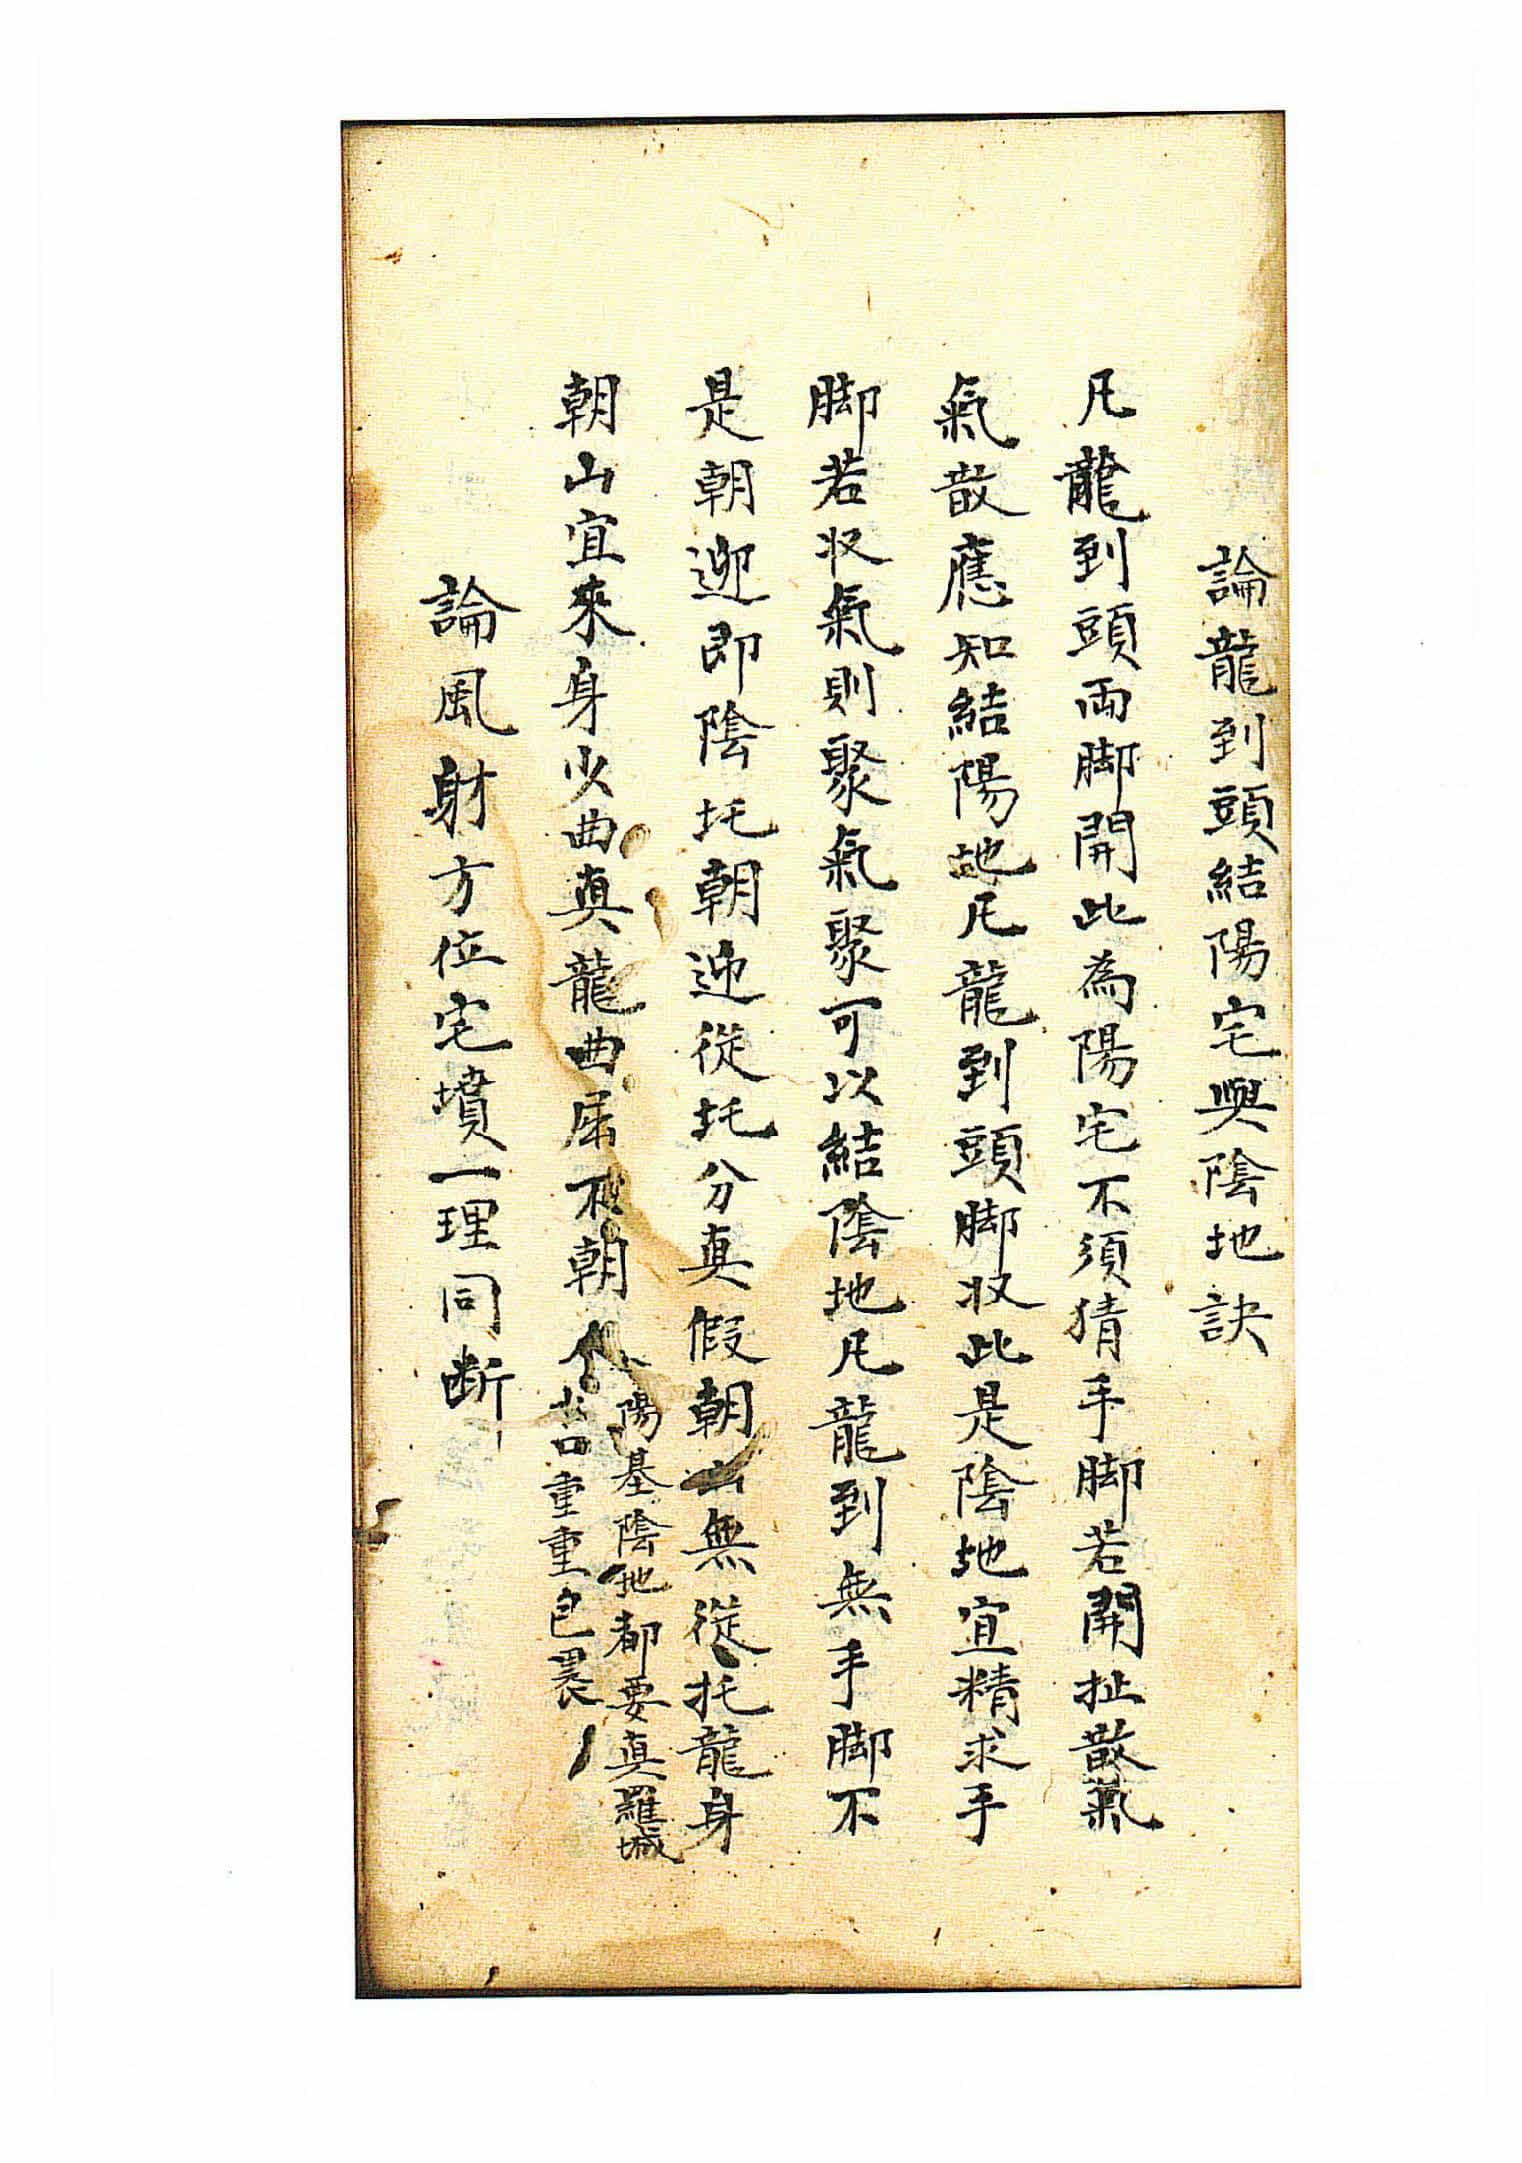 論龍到頭結陽宅與陰地訣
凡龍到頭兩脚開此為陽宅不須猜手脚若開扯散氣
氣散應知結陽地凡龍到頭脚收此是陰地宜精求手
脚若收氣則聚氣聚可以結陰地凡龍到無手脚不
是朝迎即陰圫朝迎從圫分真假朝山無從托龍身
朝山宜來身少曲真龍曲屈不朝人
陽基陰地都要真羅城
重重包裹
論風射方位宅墳一理同断